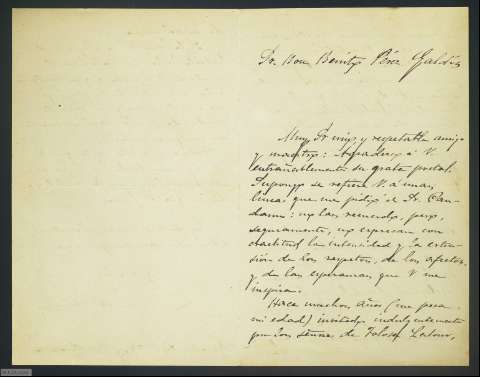 Sr. Don Benito Pérez Galdós
Muy Sr mio y respetable amigo
y maestro: Agradezco á V.
entrañablemente su grata postal.
Supongo se refiere V. á unas
líneas que me pidió el Sr. Can-
damo: no las recuerdo, pero,
seguramente, no expresan con
exactitud la intensidad y la exten-
sión de los respetos, de los afectos
y de las esperanzas que V me
inspira.
Hace muchos años (me pesa
mi edad) invitado indulgentemente
por los señores de Tolosa Latour,